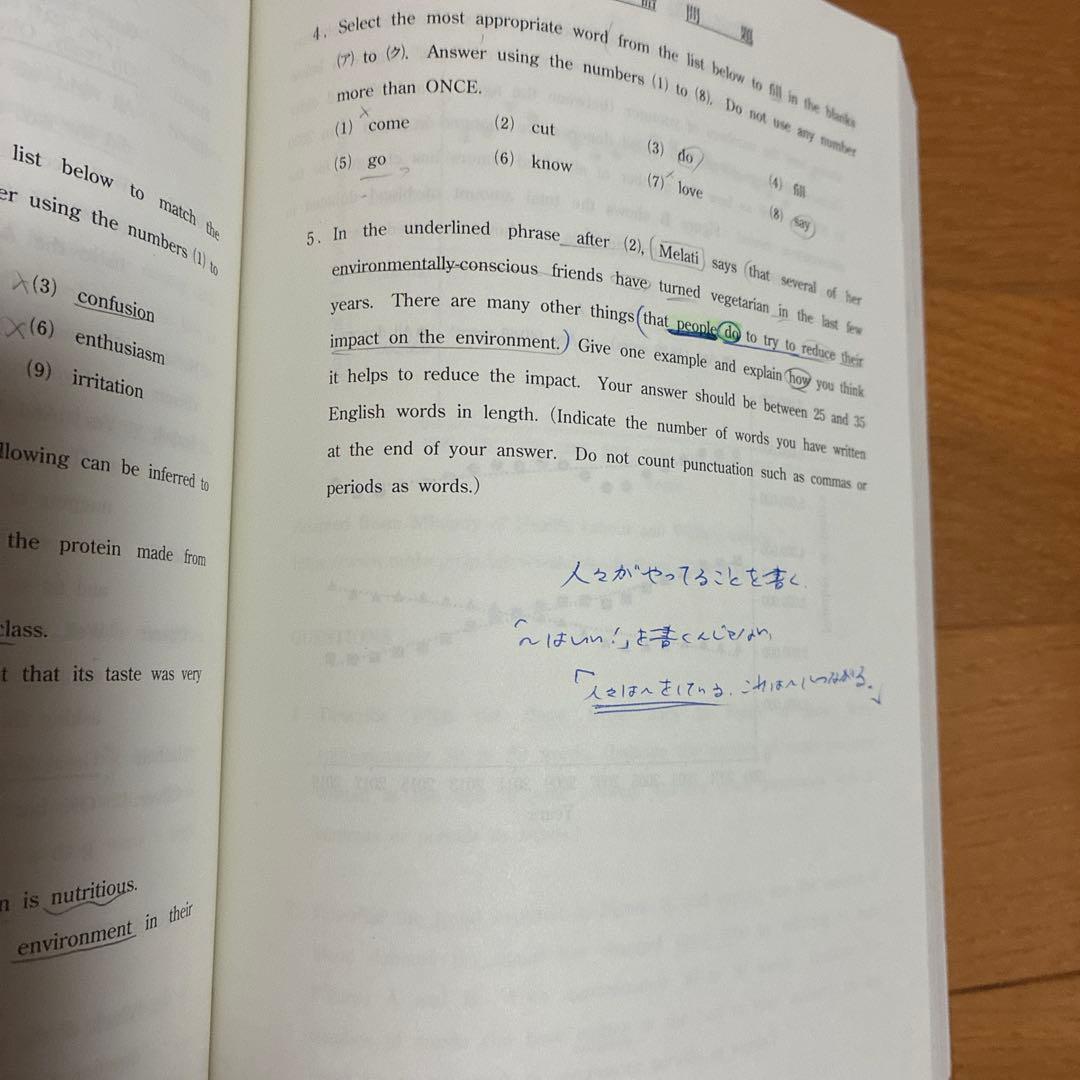 list below to match the
er using the numbers (1) to
(3) confusion
(6) enthusiasm
(9) irritation
llowing can be inferred to
the protein made from
class.
t that its taste was very
n is nutritious.
environment in their
問 題
4. Select the most appropriate word from the list below to fill in the blanks
(ア) to (ク). Answer using the numbers (1) to (8). Do not use any number
more than ONCE.
(1) come (2) cut (3) do (4) fill
(5) go (6) know (7) love (8) say
5. In the underlined phrase after (2), Melati says that several of her
environmentally-conscious friends have turned vegetarian in the last few
years. There are many other things that people do to try to reduce their
impact on the environment. Give one example and explain how you think
it helps to reduce the impact. Your answer should be between 25 and 35
English words in length. (Indicate the number of words you have written
at the end of your answer. Do not count punctuation such as commas or
periods as words.)
人々がやってることを書く.
「〜はいい!」を書くんじゃない,
「人々は〜をしている. これは〜につながる.」